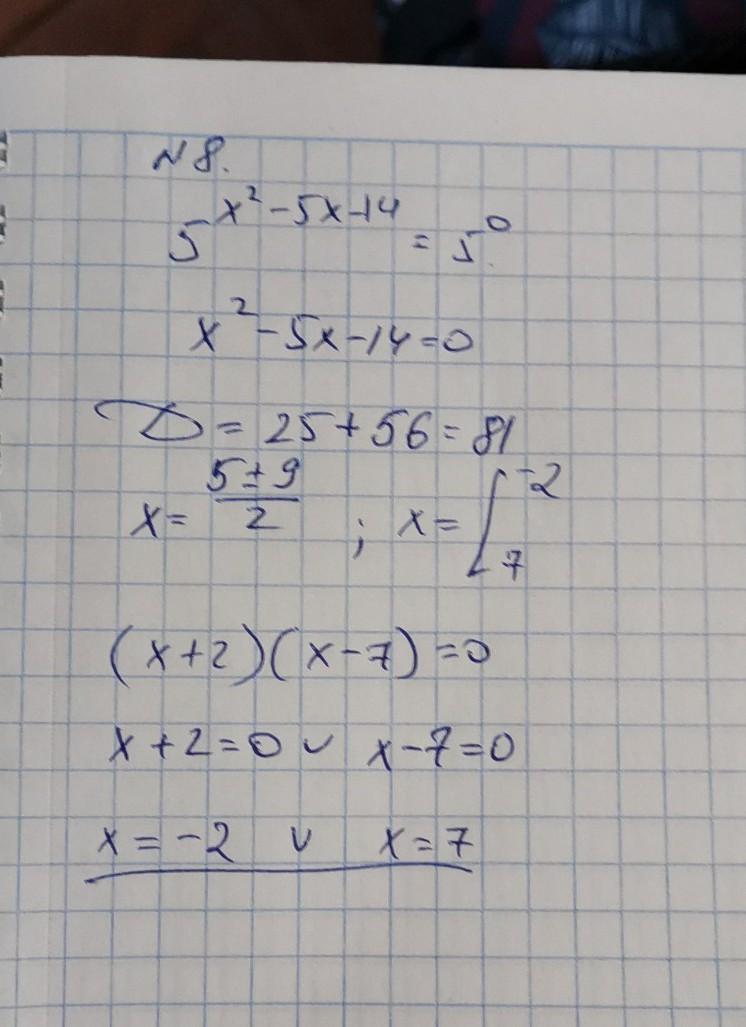 N 8.
5^{x²-5x-14} = 5^0.
x²-5x-14=0
D = 25+56=81
x= \frac{5±9}{2} ; x= [ -2 7
(x+2)(x-7)=0
x+2=0 ∨ x-7=0
x=-2 ∨ x=7